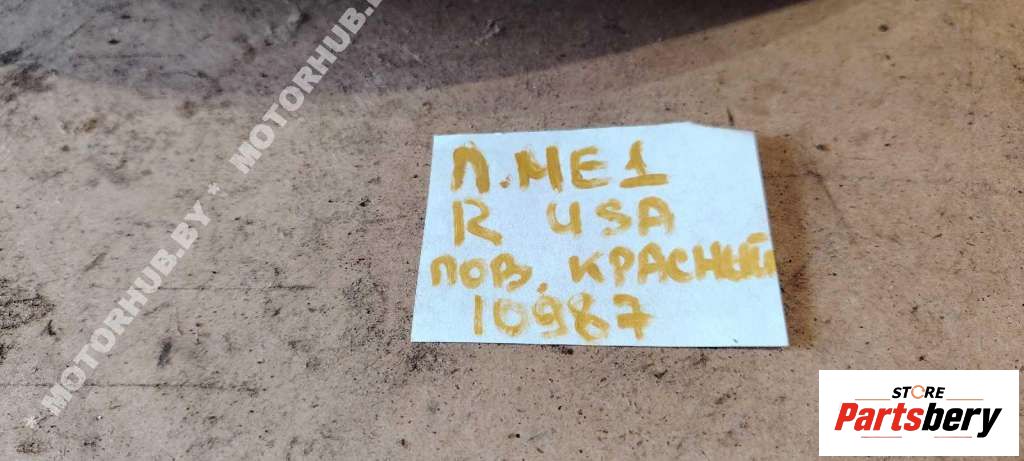 * MOTORHUB.BY * MOTORHUB.B
Л.МЕ1
R USA
ПОВ. КРАСНЫЙ
10987
STORE
Partsbery